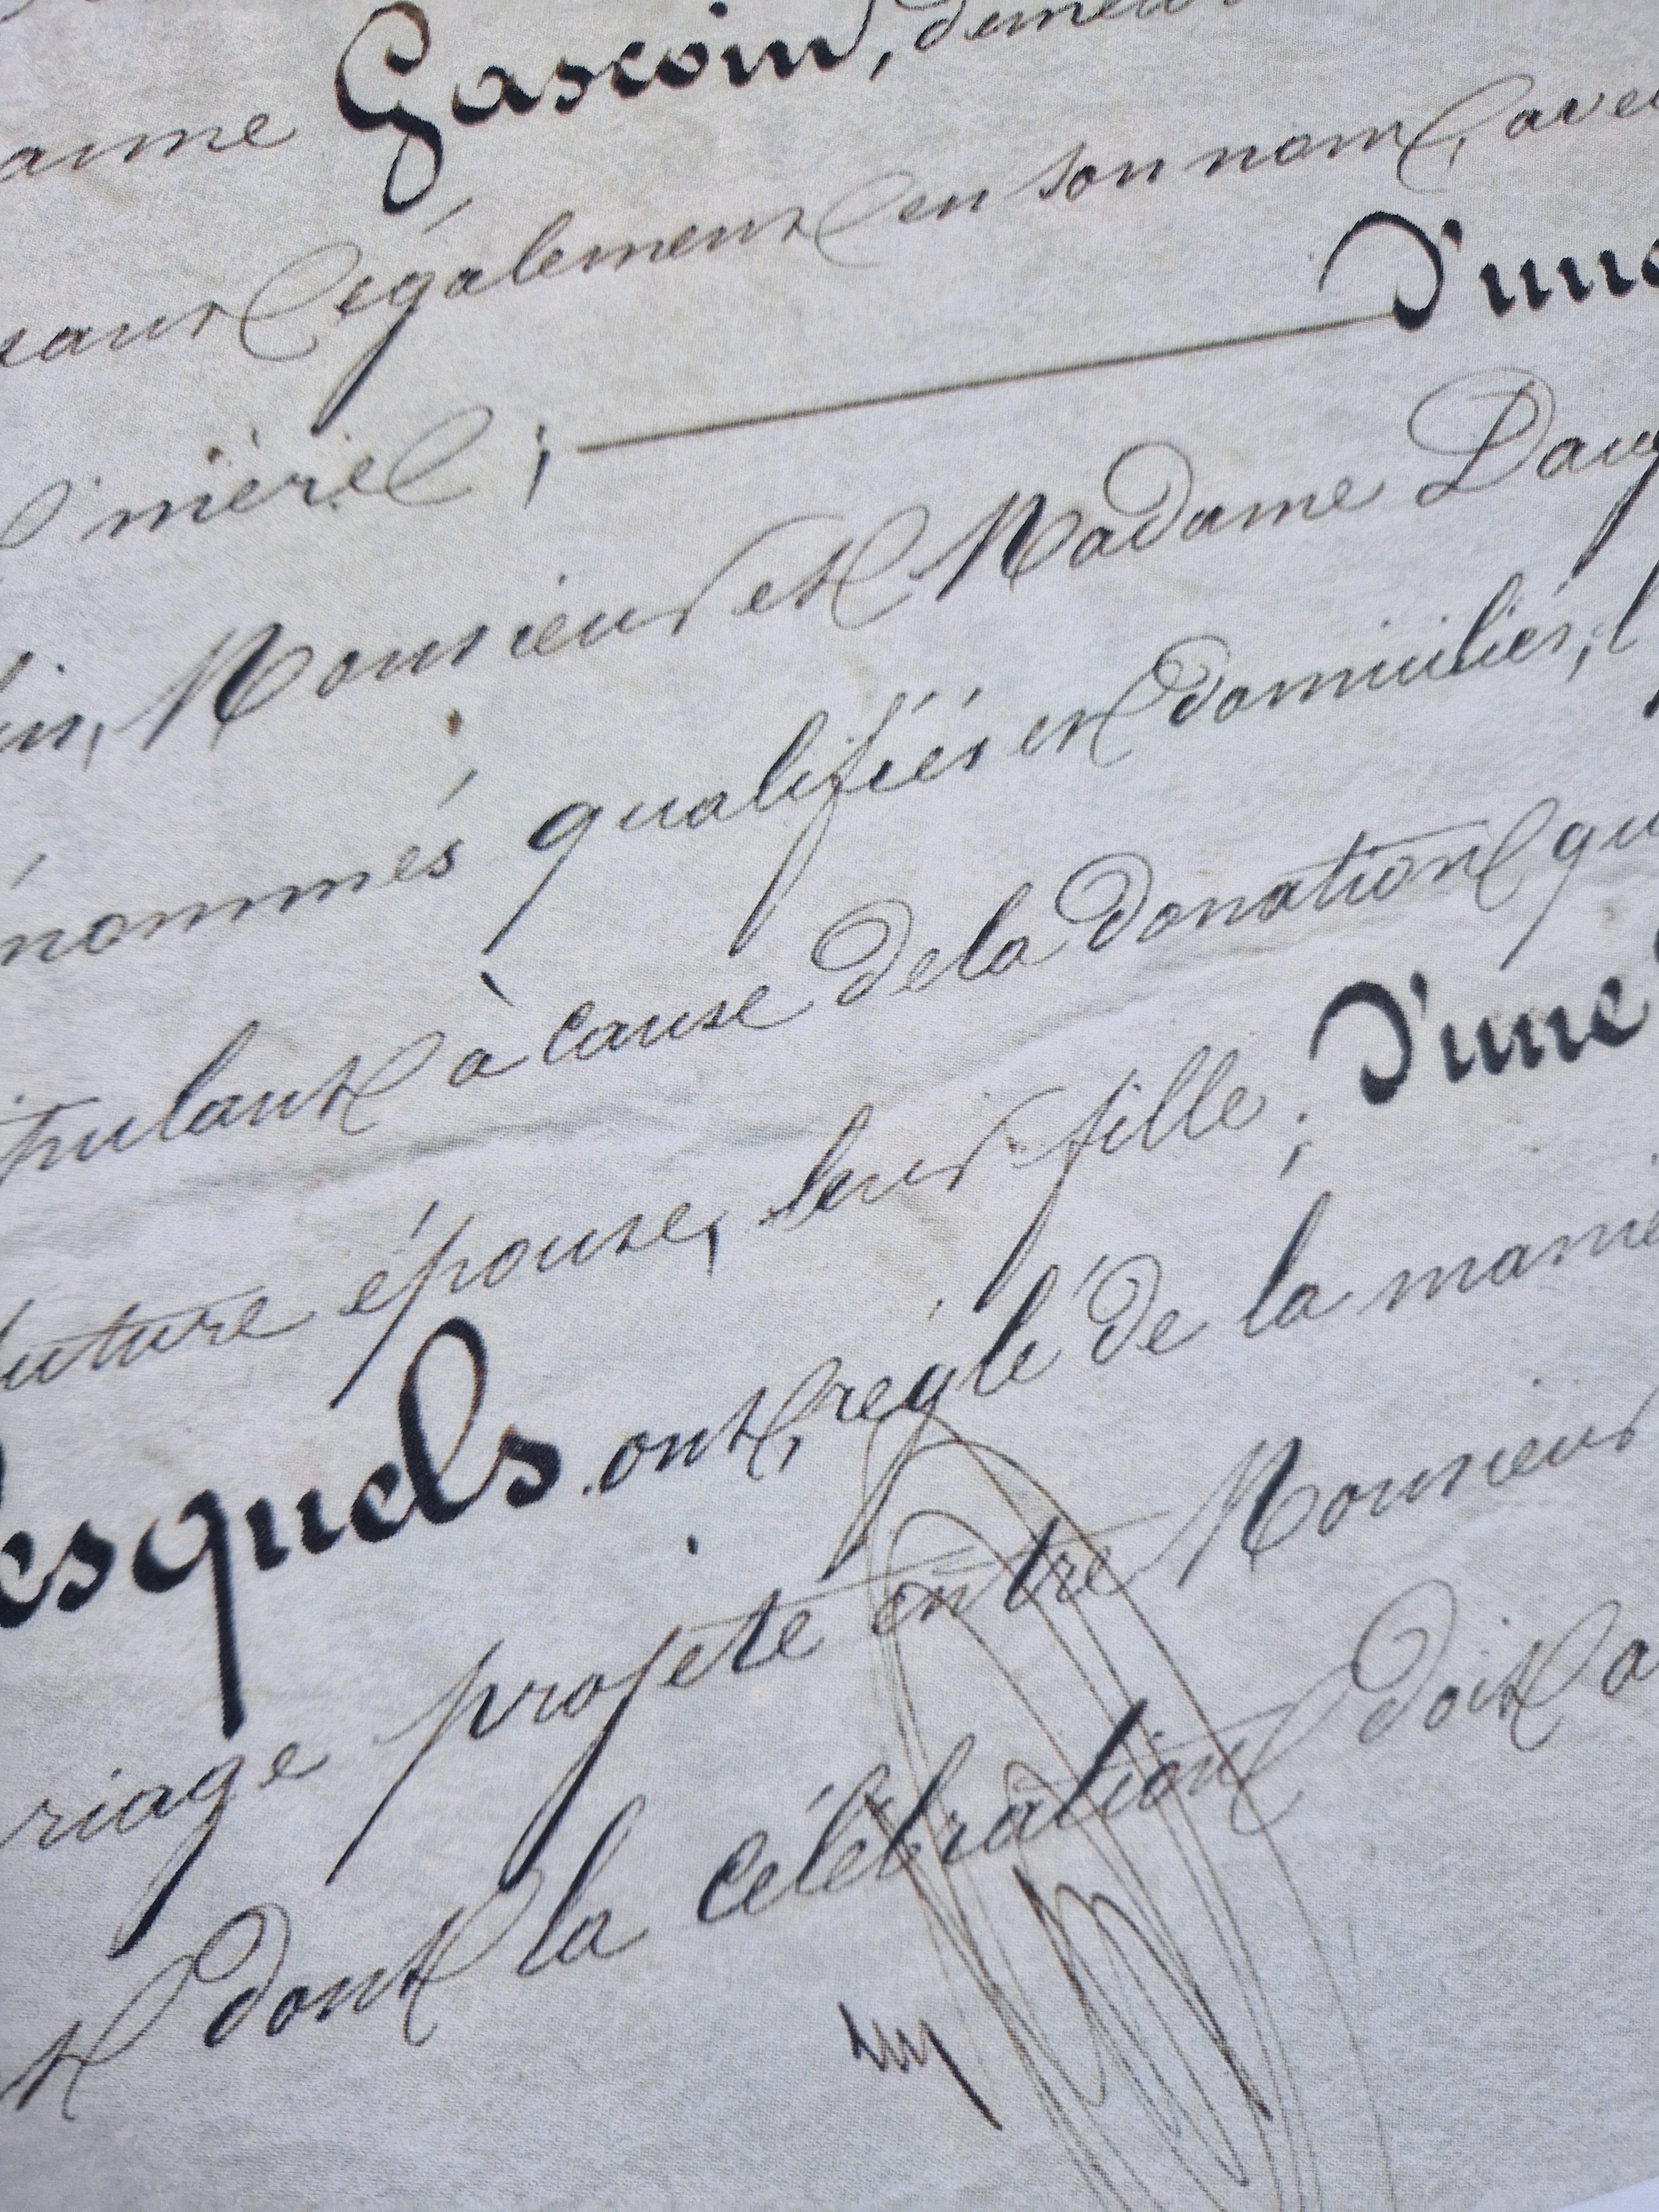 anne Gascoin, demeur
sant également en son nom, avec
mère ; D'une
in, Monsieur et Madame Daug
nommés qualifiés et domiciliés, l
pulant à cause de la donation qu
future épouse, leur fille ; D'une
esquels ont, réglé de la maniè
riage projeté entre Monsieur
et dont la célébration doit a